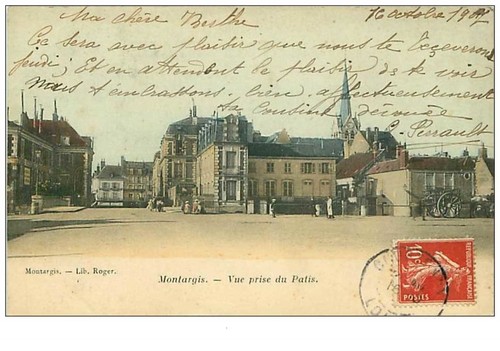 Ma chère Berthe
16 octobre 1907
Ce sera avec plaisir que nous te recevrons
jeudi; Et en attendant le plaisir de te voir
Nous t'embrassons, bien affectueusement
ta cousine dévouée
Pierault
Montargis. — Lib. Roger.
Montargis. — Vue prise du Patis.
10c
RÉPUBLIQUE FRANÇAISE
POSTES